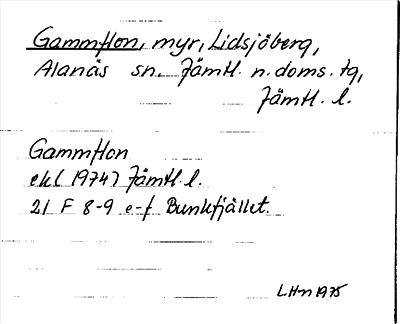 Gammflon, myr, Lidsjöberg,
Alanäs sn. Jämtl. n. doms. tg,
Jämtl. l.
Gammflon
ekl (1974) Jämtl. l.
21 F 8-9 e-f Bunkfjället.
L.Hn 1975